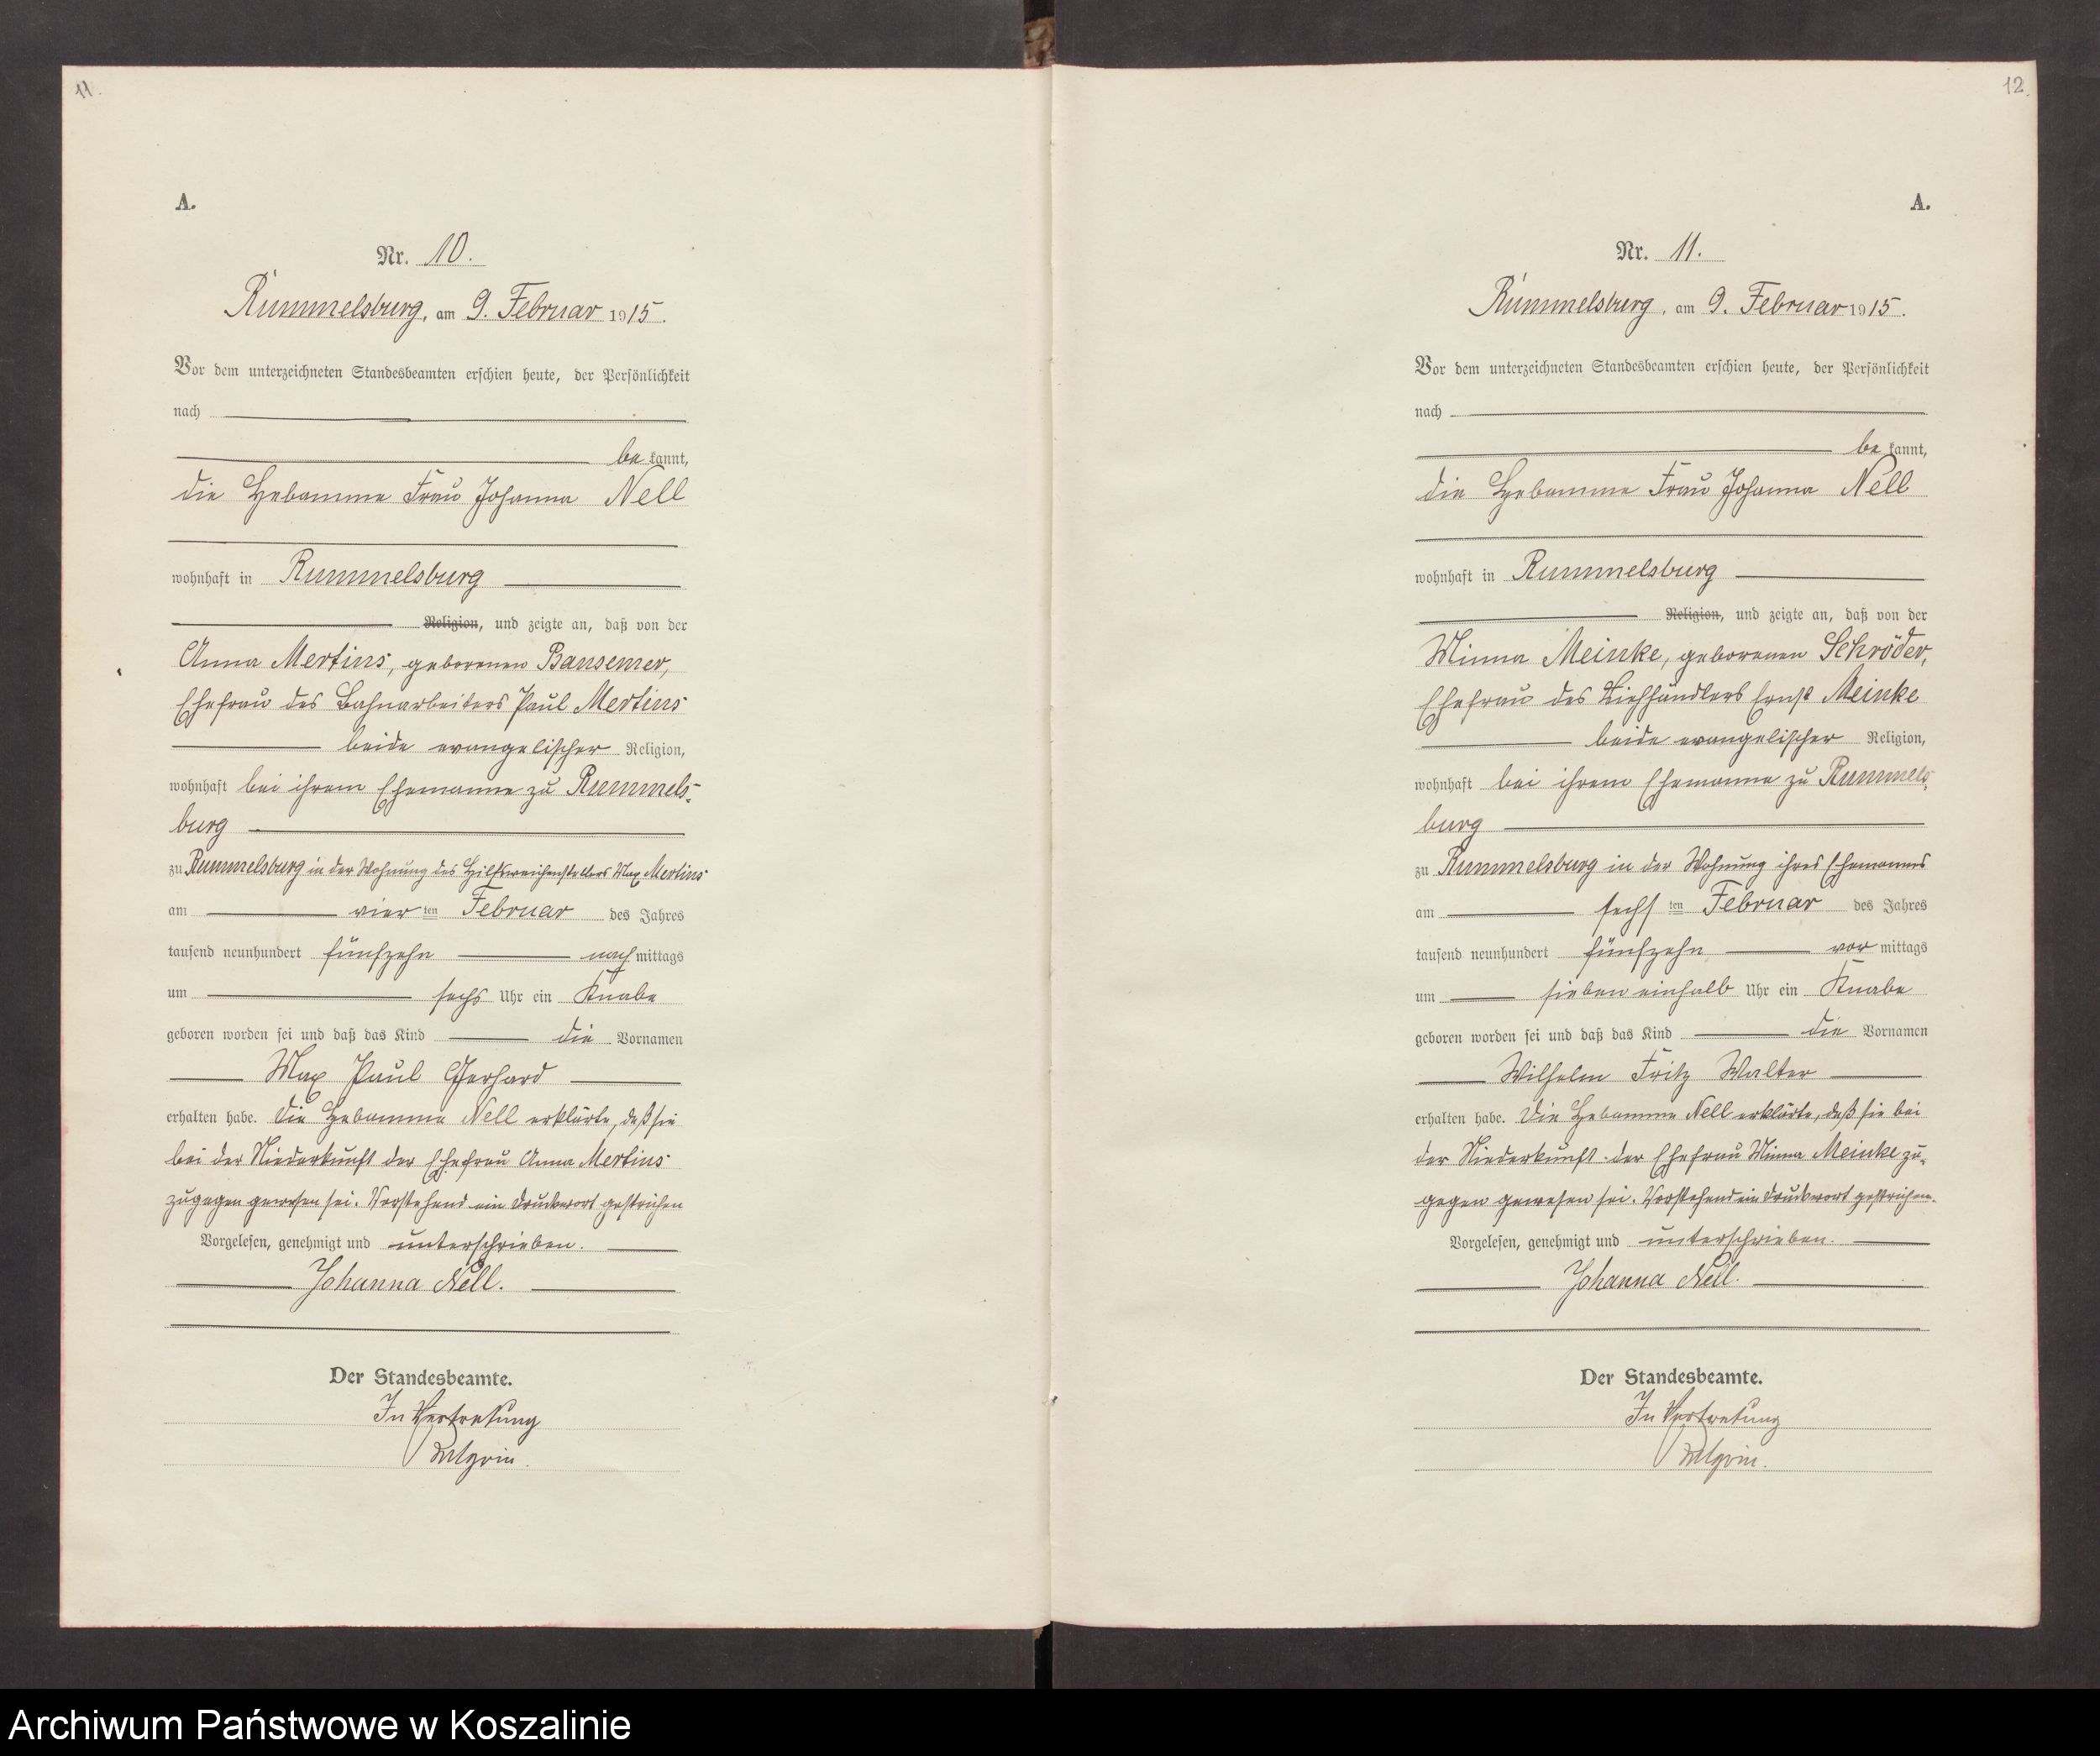 11.
A.
Nr. 10.
Rummelsburg, am 9. Februar 1915.
Vor dem unterzeichneten Standesbeamten erschien heute, der Persönlichkeit
nach
bekannt,
die Hebamme Frau Johanna Nell
wohnhaft in Rummelsburg
Religion, und zeigte an, daß von der
Anna Mertins, geborenen Bansemer,
Ehefrau des Bahnarbeiters Paul Mertins
beide evangelischer Religion,
wohnhaft bei ihrem Ehemanne zu Rummels-
burg
zu Rummelsburg in der Wohnung des Hilfsweichenstellers Max Mertins
am vierten Februar des Jahres
tausend neunhundert fünfzehn nachmittags
um sechs Uhr ein Knabe
geboren worden sei und daß das Kind die Vornamen
Max Paul Gerhard
erhalten habe. Die Hebamme Nell erklärte, daß sie
bei der Niederkunft der Ehefrau Anna Mertins
zugegen gewesen sei. Vorstehend ein Druckwort gestrichen
Vorgelesen, genehmigt und unterschrieben.
Johanna Nell.
Der Standesbeamte.
In Vertretung
12.
A.
Nr. 11.
Rummelsburg, am 9. Februar 1915.
Vor dem unterzeichneten Standesbeamten erschien heute, der Persönlichkeit
nach
bekannt,
die Hebamme Frau Johanna Nell
wohnhaft in Rummelsburg
Religion, und zeigte an, daß von der
Minna Meinke, geborenen Schröder,
Ehefrau des Viehhändlers Ernst Meinke
beide evangelischer Religion,
wohnhaft bei ihrem Ehemanne zu Rummels-
burg
zu Rummelsburg in der Wohnung ihres Ehemannes
am sechsten Februar des Jahres
tausend neunhundert fünfzehn vormittags
um sieben einhalb Uhr ein Knabe
geboren worden sei und daß das Kind die Vornamen
Wilhelm Fritz Walter
erhalten habe. Die Hebamme Nell erklärte, daß sie bei
der Niederkunft der Ehefrau Minna Meinke zu-
gegen gewesen sei. Vorstehend ein Druckwort gestrichen.
Vorgelesen, genehmigt und unterschrieben.
Johanna Nell.
Der Standesbeamte.
In Vertretung
Archiwum Państwowe w Koszalinie